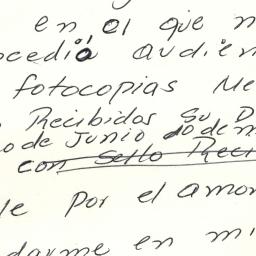 en el que n
ocedió Audien
fotocopias Me
Recibidas Su D
o de Junio 10 de m
con Sello Reci
le por el amor
darme en mi